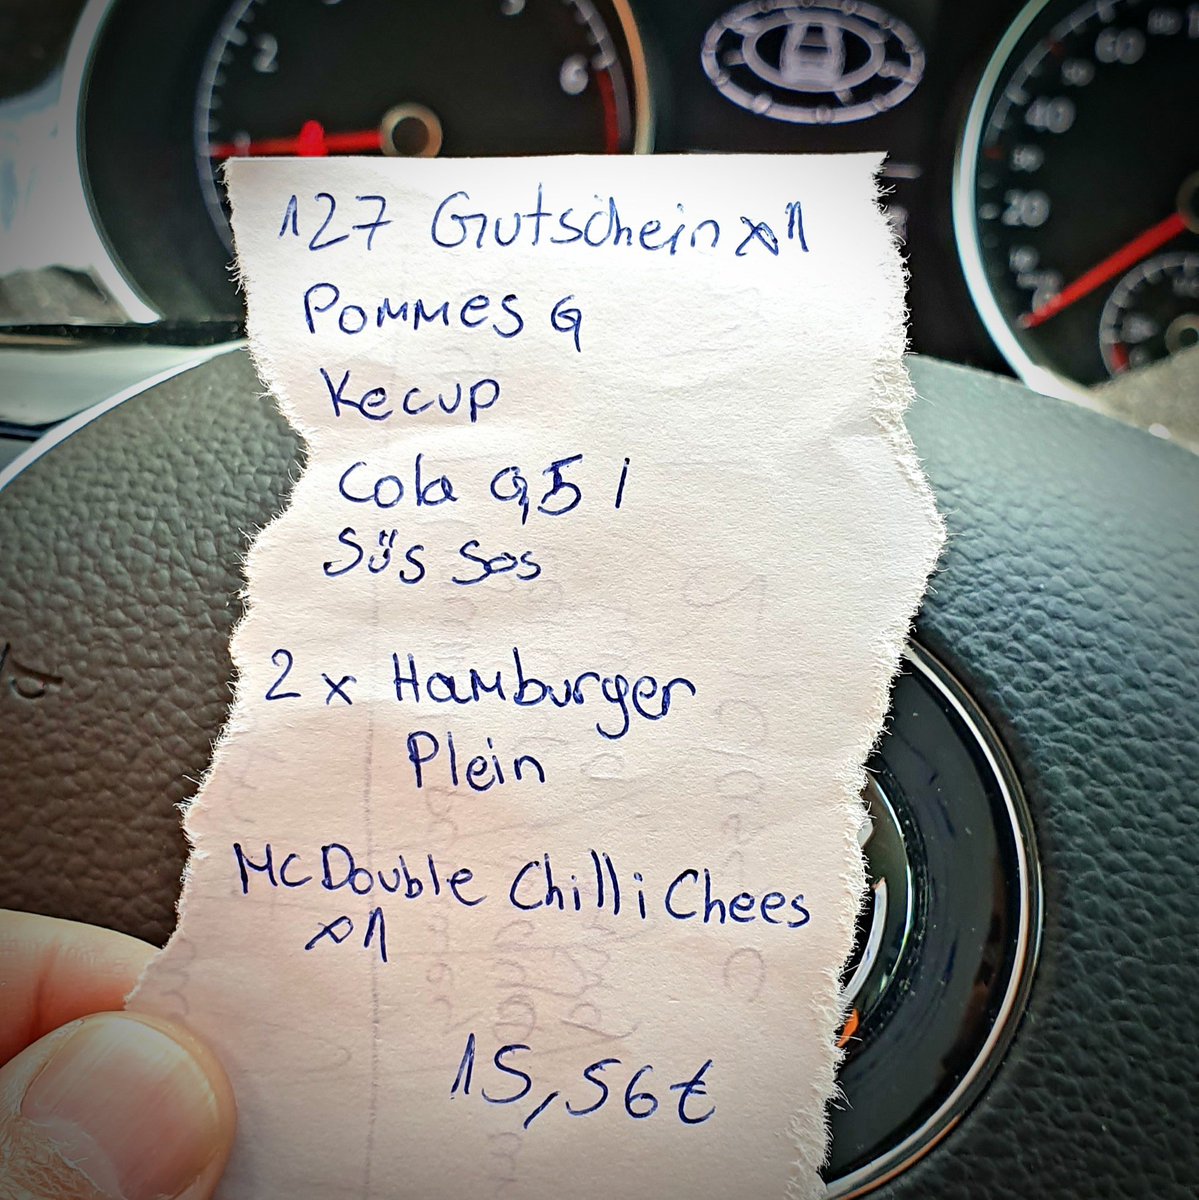 127 Gutschein x1
Pommes G
Kecup
Cola 0,5 l
Süs Sos
2 x Hamburger
Plein
McDouble Chilli Chees
x1
15,56€
2
6
60
40
20